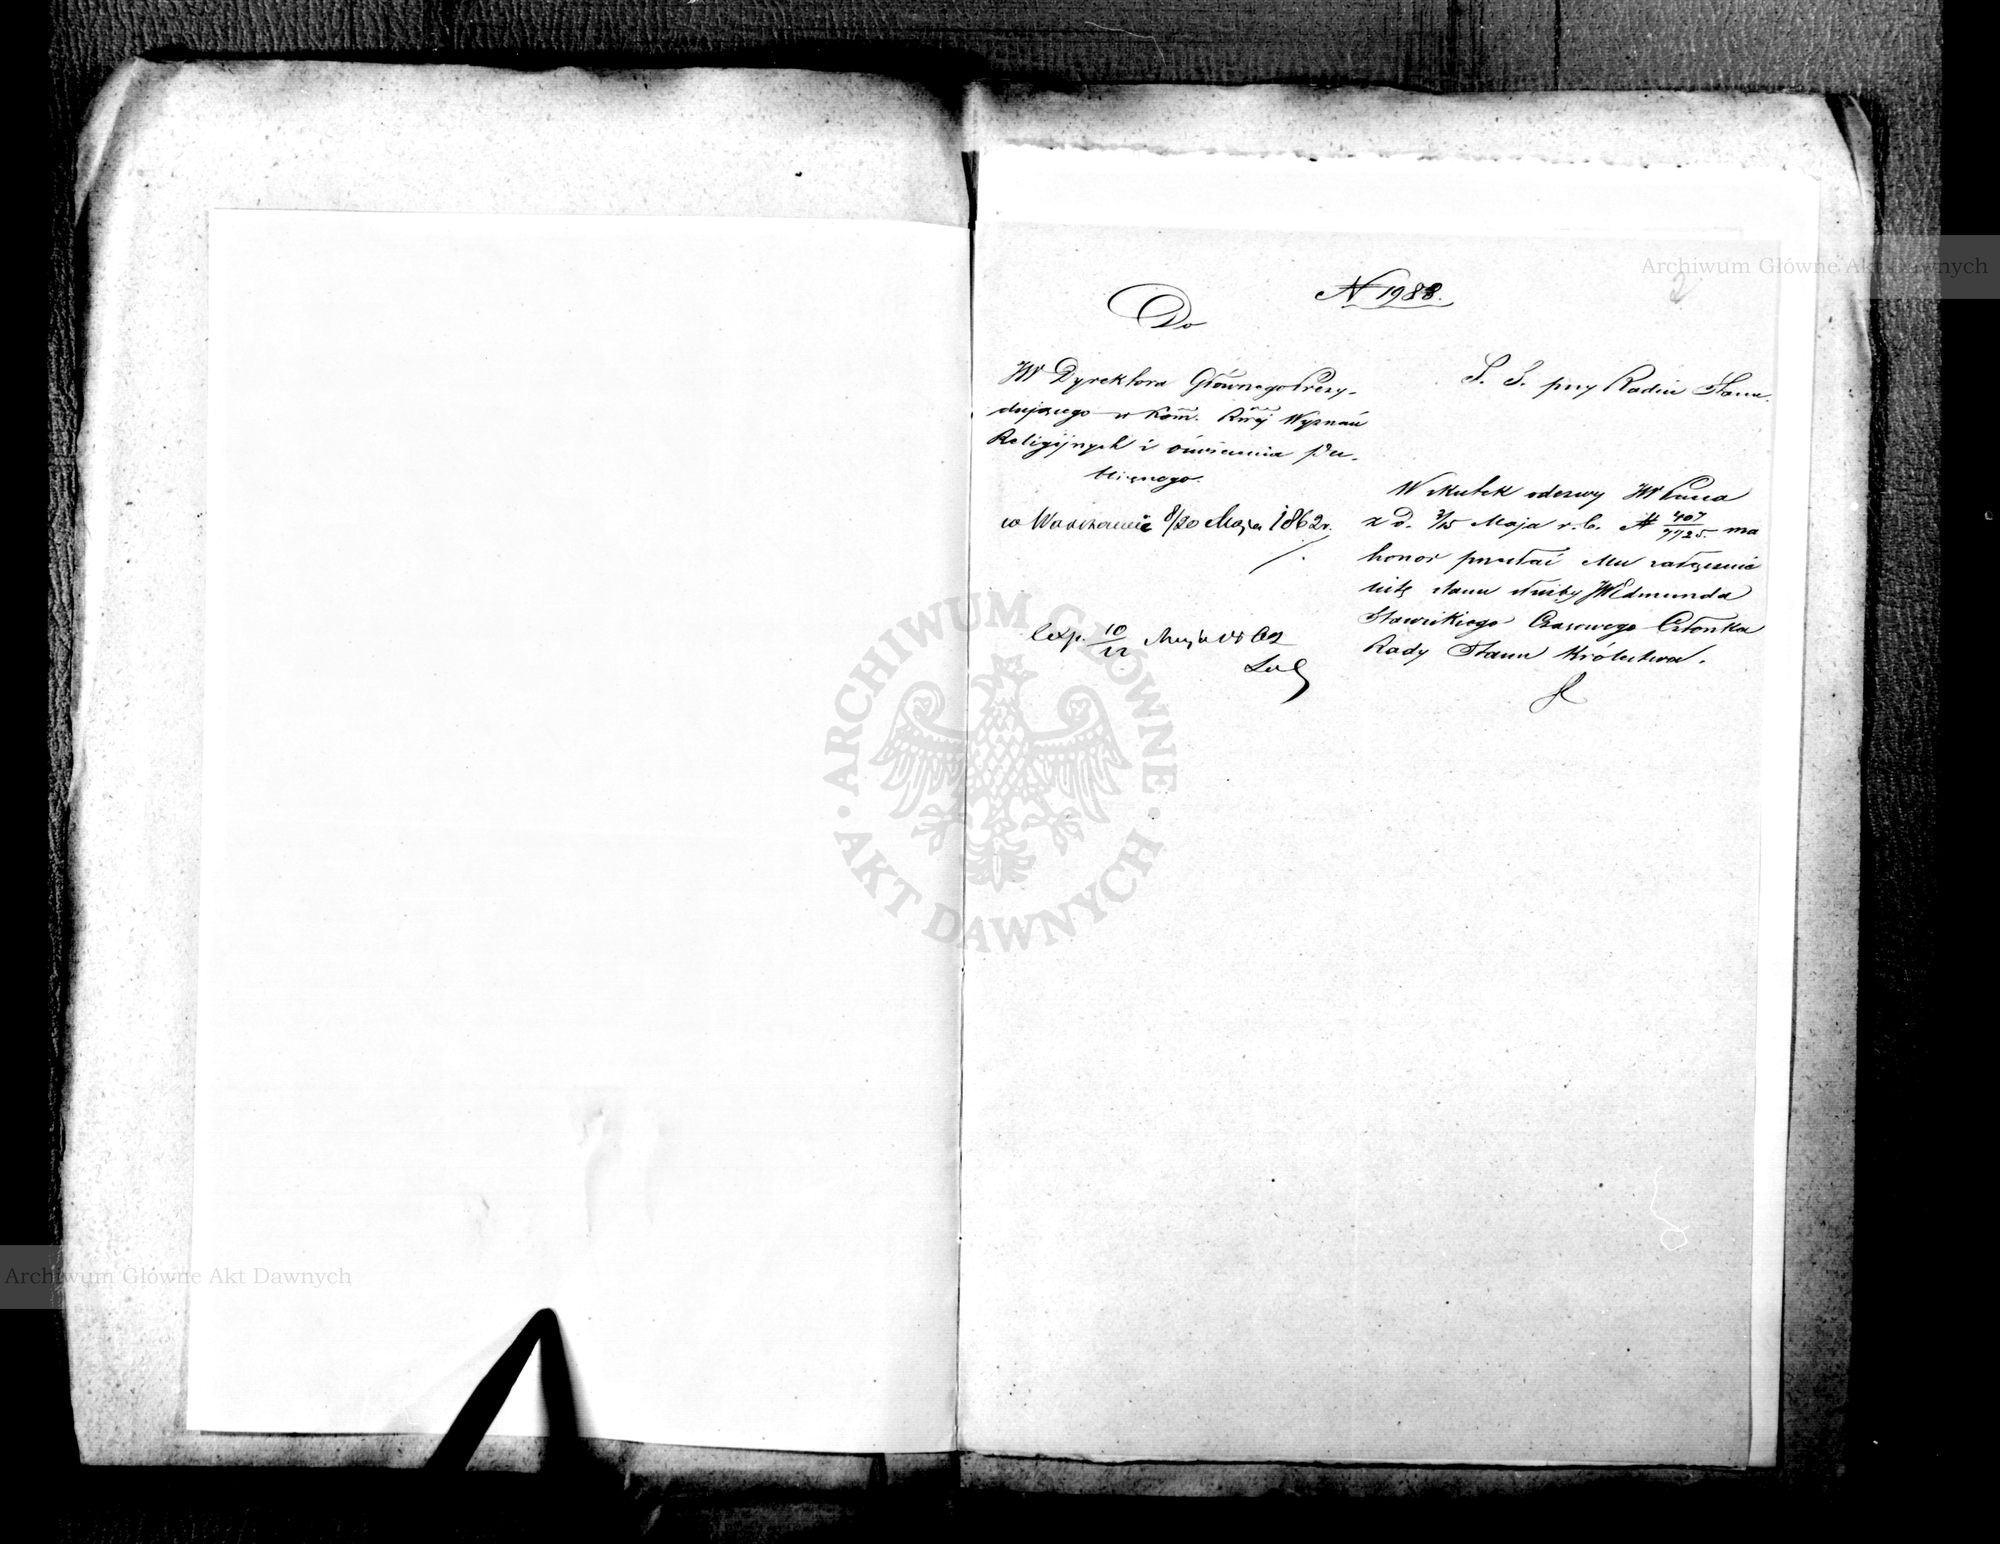 N 1988.
2
Do
JW Dyrektora Głównego Prezy-
dującego w Kom. Rząj Wyznań
Religijnych i Oświecenia Pu-
blicznego.
w Warszawie 8/20 Maja 1862 r.
Exp. 10/22 Maja 1862
S. S. przy Radzie Stanu.
W skutek odezwy JW Pana
z d. 3/15 Maja r. b. N 407/7725. ma
honor przesłać Mu załączenie
listę stanu służby JW Edmunda
Stawiskiego Czasowego Członka
Rady Stanu Królestwa.
Archiwum Główne Akt Dawnych
Archiwum Główne Akt Dawnych
ARCHIWUM GŁÓWNE
AKT DAWNYCH